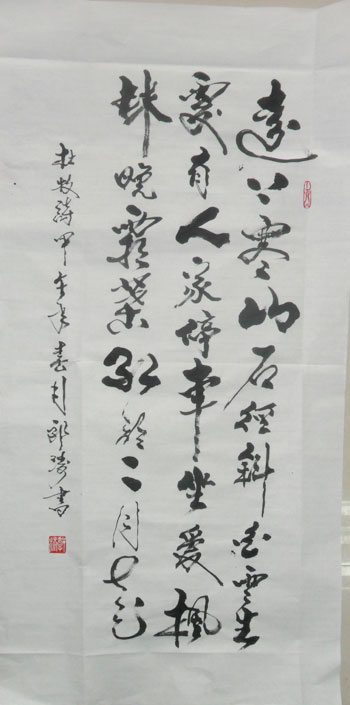 遠上寒山石徑斜白雲生
處有人家停車坐愛楓
林晚霜葉紅於二月花
杜牧詩甲午年春月書